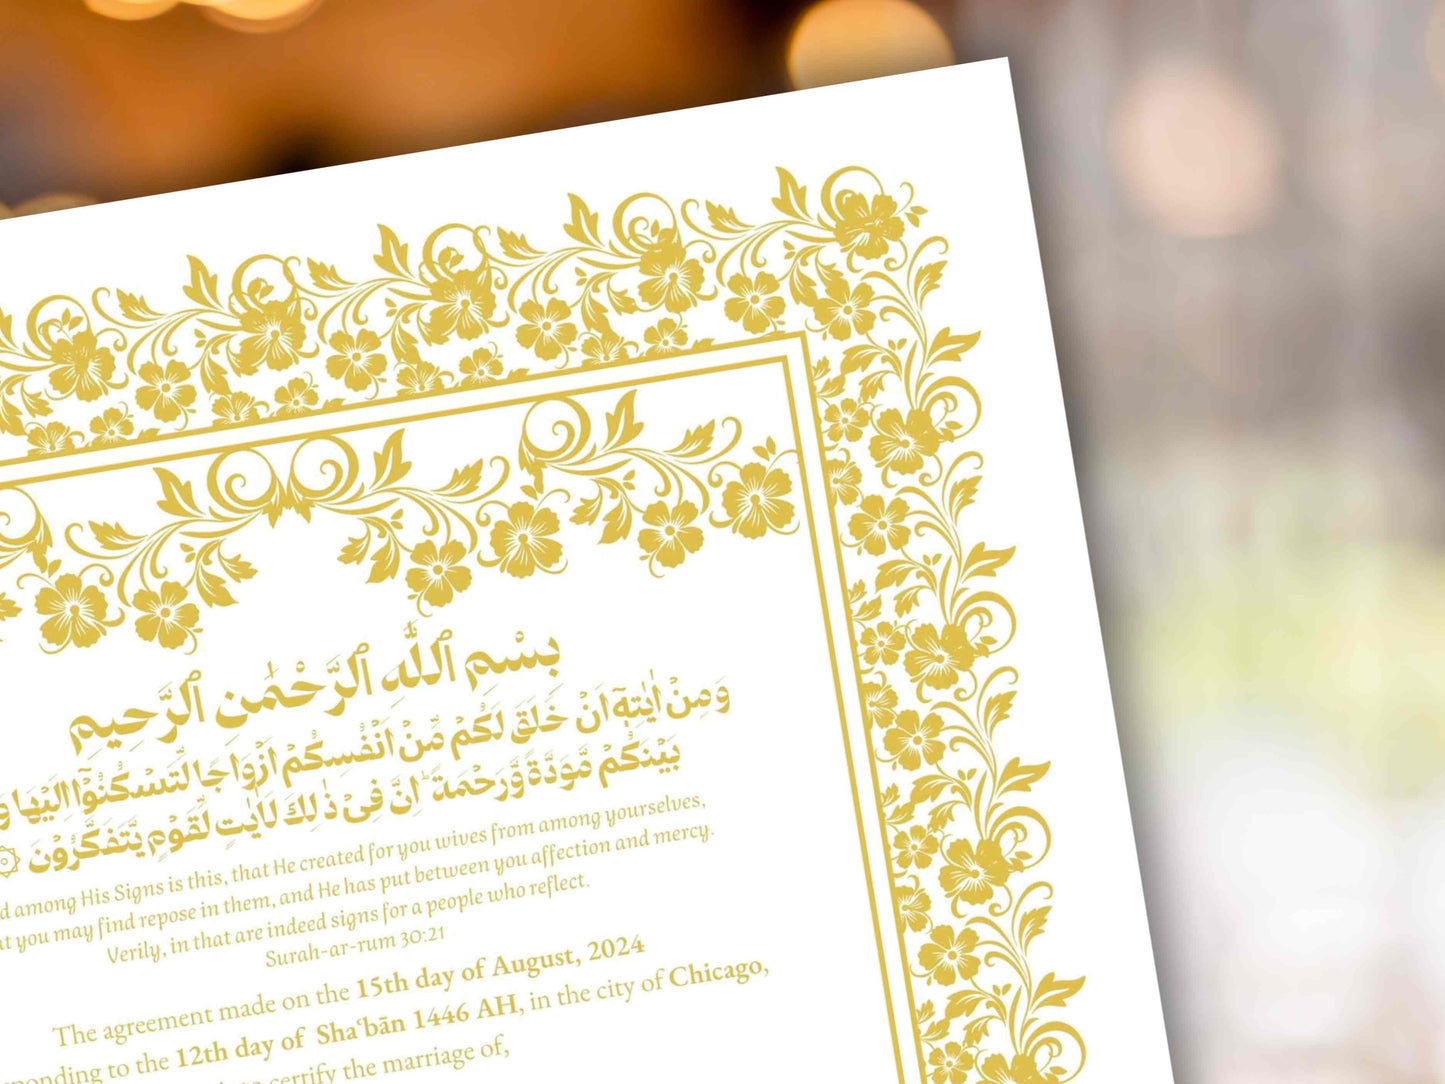 بِسْمِ ٱللَّهِ ٱلرَّحْمَٰنِ ٱلرَّحِيمِ
وَمِنْ اٰيٰتِهٖٓ اَنْ خَلَقَ لَكُمْ مِّنْ اَنْفُسِكُمْ اَزْوَاجًا لِّتَسْكُنُوْٓا اِلَيْهَا
بَيْنَكُمْ مَّوَدَّةً وَّرَحْمَةً ۗ اِنَّ فِيْ ذٰلِكَ لَاٰيٰتٍ لِّقَوْمٍ يَّتَفَكَّرُوْنَ ۞
among His Signs is this, that He created for you wives from among yourselves,
you may find repose in them, and He has put between you affection and mercy.
Verily, in that are indeed signs for a people who reflect.
Surah-ar-rum 30:21
The agreement made on the 15th day of August, 2024
ponding to the 12th day of Shaʿbān 1446 AH, in the city of Chicago,
to certify the marriage of,